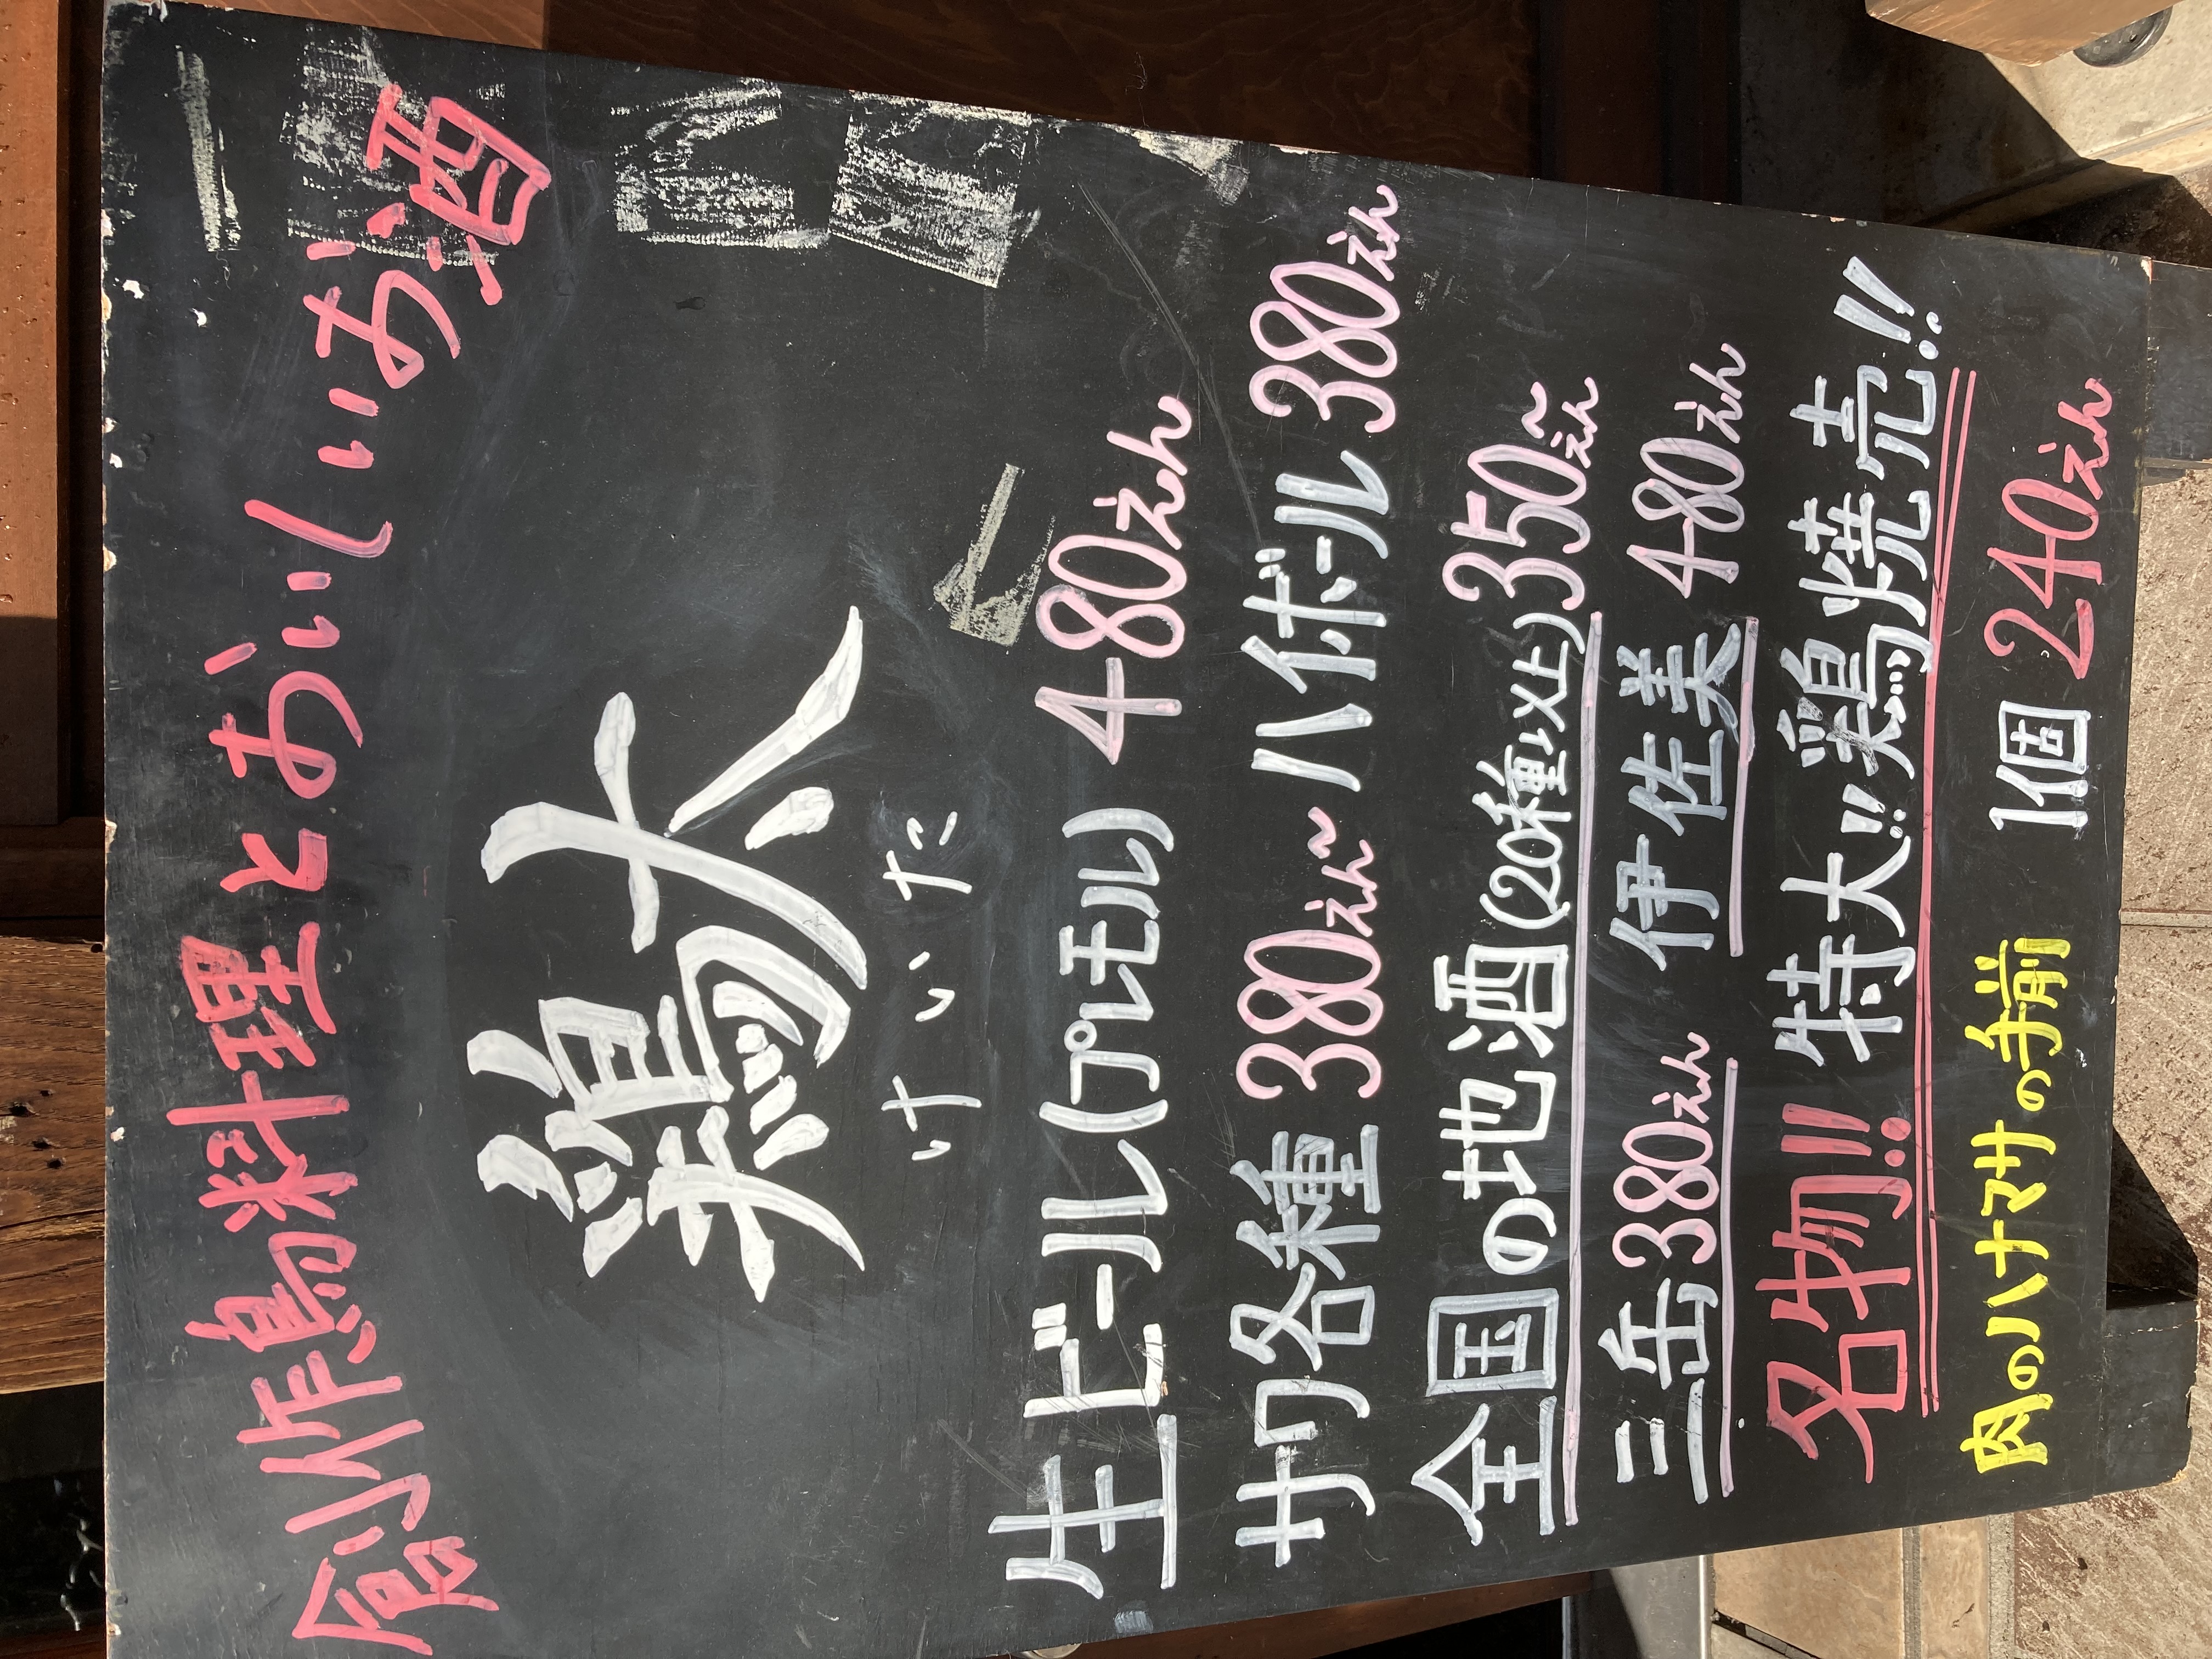 創作鳥料理とおいしいお酒
鶏太
けいた
生ビール(プレモル) 480えん
サワ各種 380えん~ ハイボール 380えん
全国の地酒(20種以上) 350えん~
三岳 380えん 伊佐美 480えん
名物!! 特大!! 鶏焼売!!
肉のハナマサの手前 1個 240えん